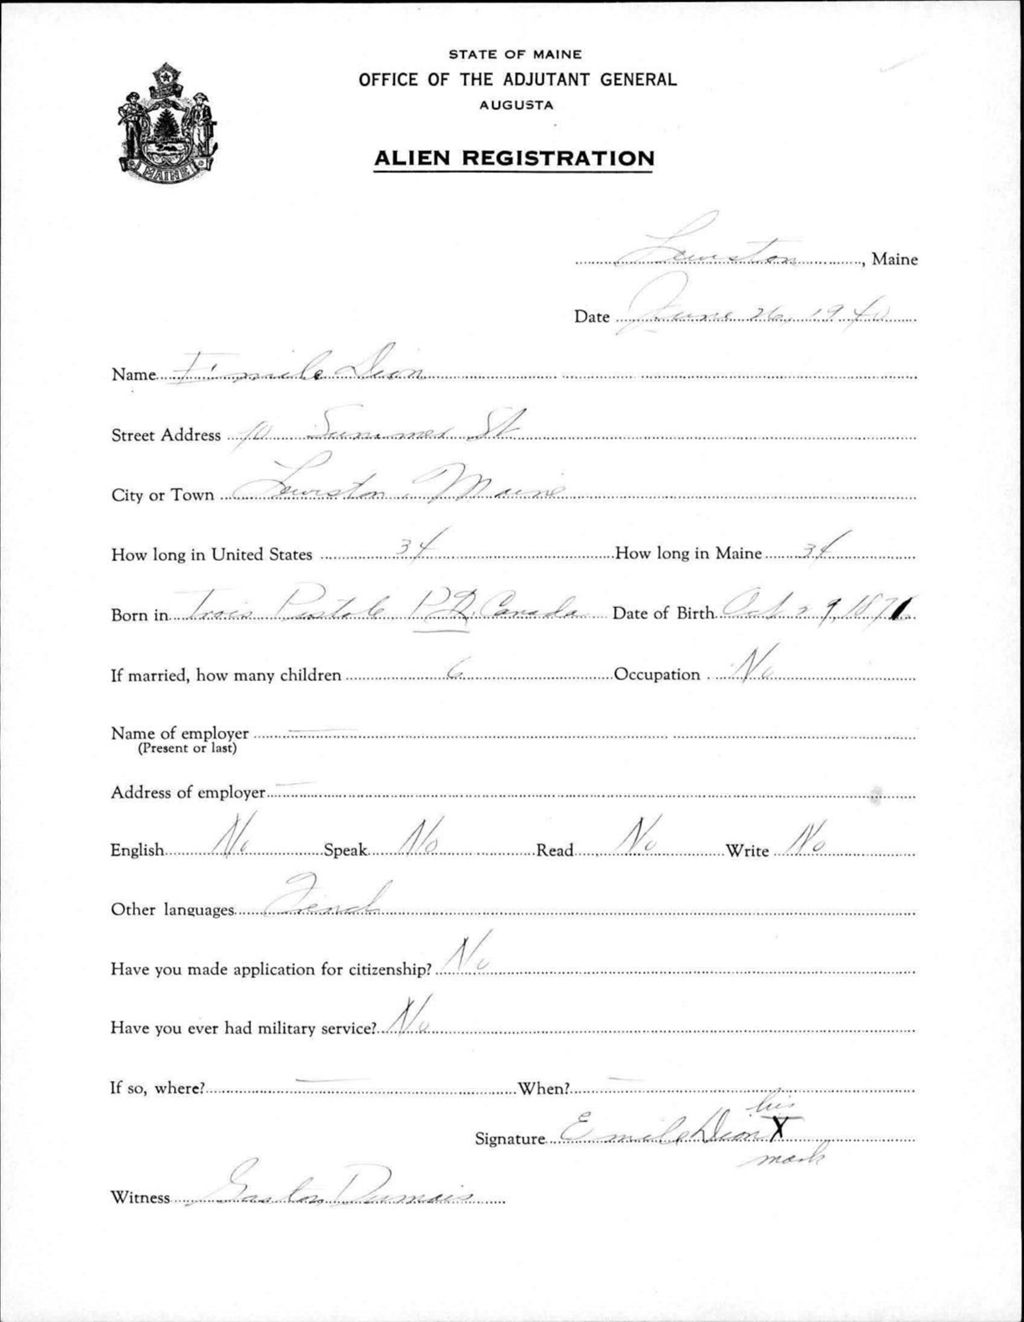 STATE OF MAINE
OFFICE OF THE ADJUTANT GENERAL
AUGUSTA
ALIEN REGISTRATION
MAINE
Lewiston, Maine
Date June 26, 1940
Name Emile Dion
Street Address 10 Summer St
City or Town Lewiston, Maine
How long in United States 34 How long in Maine 34
Born in Trois Pistole P.Q. Canada Date of Birth Oct 29, 1871
If married, how many children 6 Occupation No
Name of employer —
(Present or last)
Address of employer —
English No Speak No Read No Write No
Other languages French
Have you made application for citizenship? No
Have you ever had military service? No
If so, where? — When? —
his
Signature Emile Dion X
mark
Witness Gaston Dumais